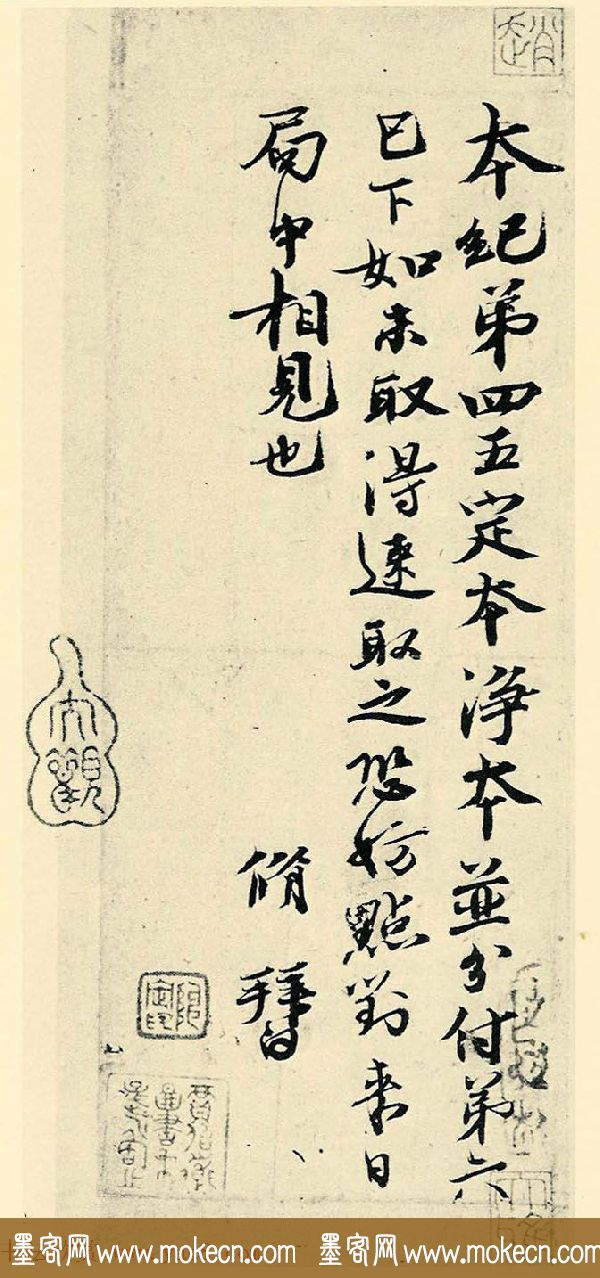 本紀第四五定本净本並分付第六
已下如未取得速取之恐妨點對来日
局中相見也
脩 拜白
大觀
墨客网 www.mokecn.com 墨客网 www.mokecn.com